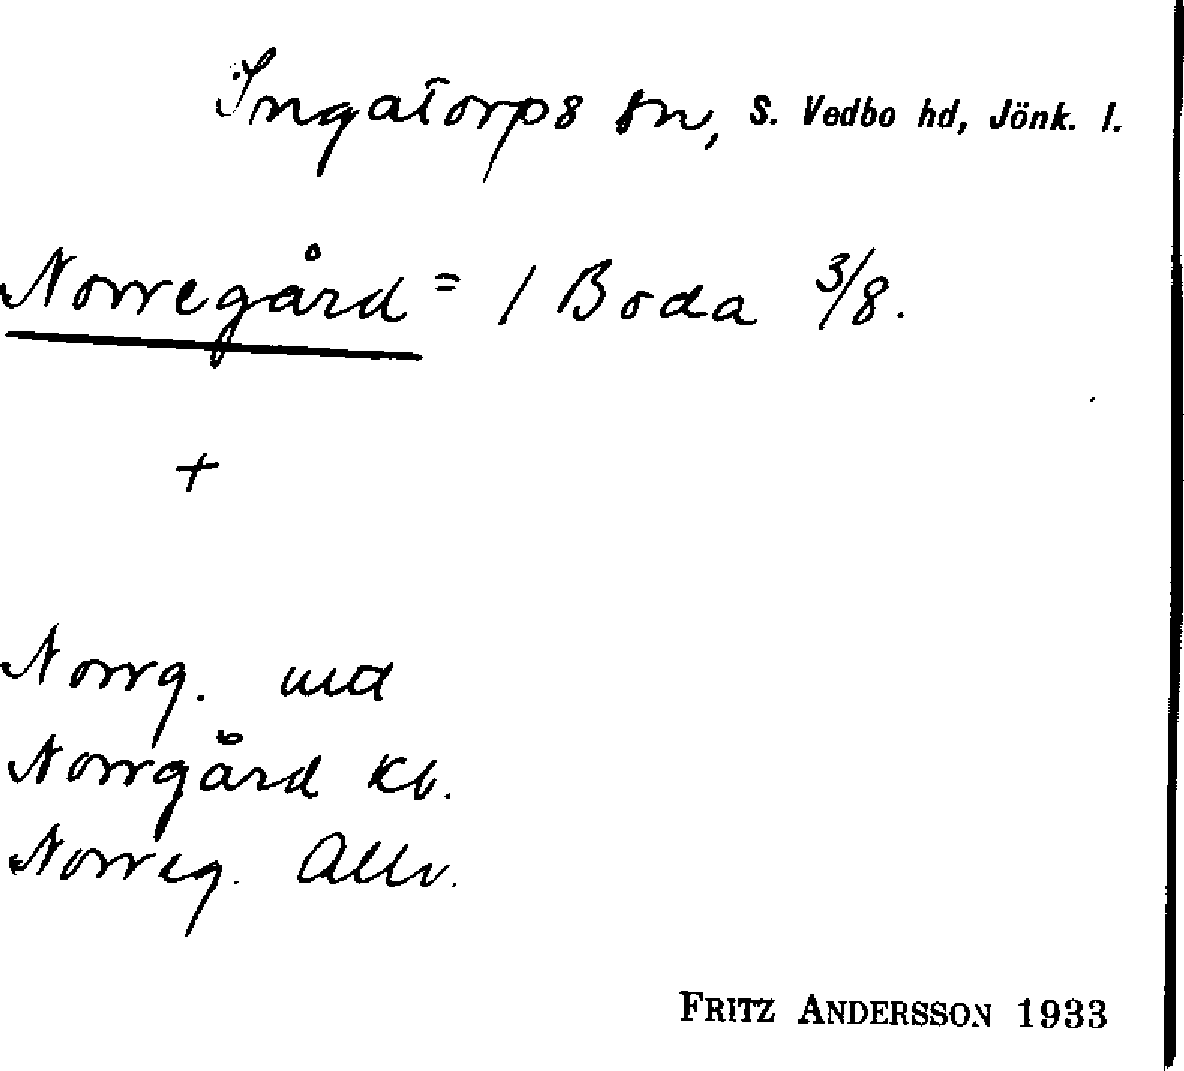 Ingatorps sn, S. Vedbo hd, Jönk. l.
Norregård = 1 Boda 3/8.
+
Norrg. utt
Norrgård Kb.
Norreg. Allv.
FRITZ ANDERSSON 1933